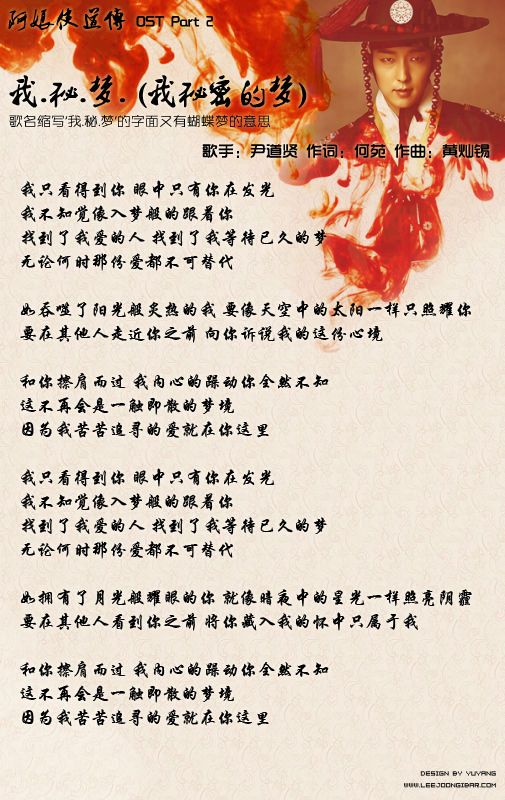 阿娘使道傳 OST Part 2
我.秘.梦. (我秘密的梦)
歌名缩写'我.秘.梦'的字面又有蝴蝶梦的意思
歌手：尹道贤 作词：何苑 作曲：黄灿锡
我只看得到你 眼中只有你在发光
我不知觉像入梦般的跟着你
找到了我爱的人 找到了我等待已久的梦
无论何时那份爱都不可替代
如吞噬了阳光般炙热的我 要像天空中的太阳一样只照耀你
要在其他人走近你之前 向你诉说我的这份心境
和你擦肩而过 我内心的躁动你全然不知
这不再会是一触即散的梦境
因为我苦苦追寻的爱就在你这里
我只看得到你 眼中只有你在发光
我不知觉像入梦般的跟着你
找到了我爱的人 找到了我等待已久的梦
无论何时那份爱都不可替代
如拥有了月光般耀眼的你 就像暗夜中的星光一样照亮阴霾
要在其他人看到你之前 将你藏入我的怀中只属于我
和你擦肩而过 我内心的躁动你全然不知
这不再会是一触即散的梦境
因为我苦苦追寻的爱就在你这里
DESIGN BY YUYANG
WWW.LEEJOONGIBAR.COM